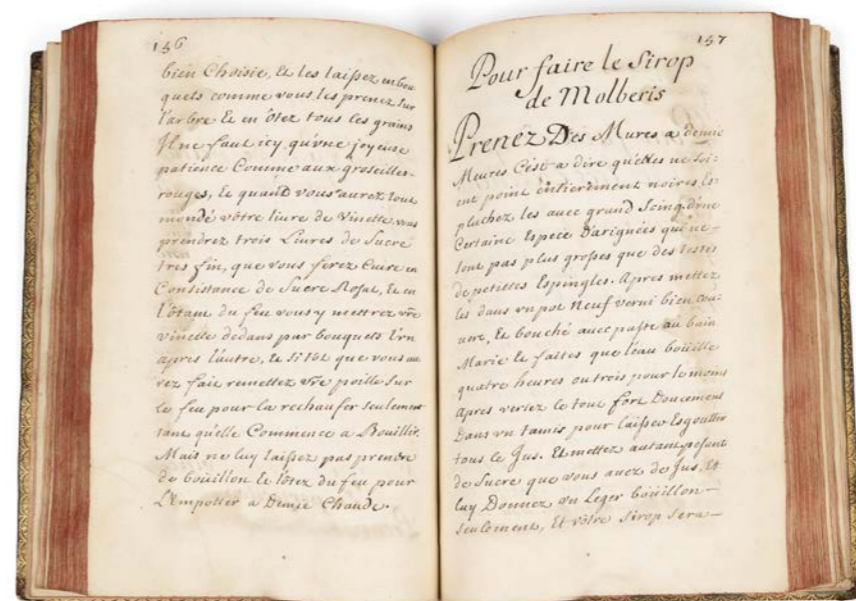 156
bien Choisie, Et les laissez en bou
quets comme vous les prenez sur
l'arbre Et en ôtez tous les grains
Il ne faut icy qu'vne joyeuse
patience Comme aux groseilles
rouges, Et quand vous aurez tout
mondé vôtre liure de Vinette vous
prendrez trois Liures de Sucre
tres fin, que vous ferez Cuire en
Consistance de Sucre Rosat, Et en
l'ôtant du feu vous y mettrez vre
vinette dedans par bouquets l'vn
apres l'autre, Et si tôt que vous au
rez fait remettez vre poille sur
le feu pour la rechaufer seulement
tant qu'elle Commence a Bouillir,
Mais ne luy laissez pas prendre
de boüillon Et l'ôtez du feu pour
L'Empotter a Demie Chaude.
157
Pour faire le Sirop
de Molberis
Prenez Des Mures a demie
Meures C'est a dire qu'elles ne soi-
ent point entierement noires Es-
pluchez les auec grand Soing d'vne
Certaine Espece D'arignées qui ne
sont pas plus grosses que des testes
de petittes Espingles. Apres mettez
les dans vn pot Neuf verni bien cou-
uert, Et bouché auec paste au bain
Marie Et faites que l'eau boüille
quatre heures ou trois pour le moins
apres versez le tout fort Doucement
Dans vn tamis pour laisser Esgouttir
tous le Jus. Et mettez autant pesant
de Sucre que vous auez de Jus, Et
luy Donnez vn Leger boüillon
seulement, Et vôtre Sirop sera